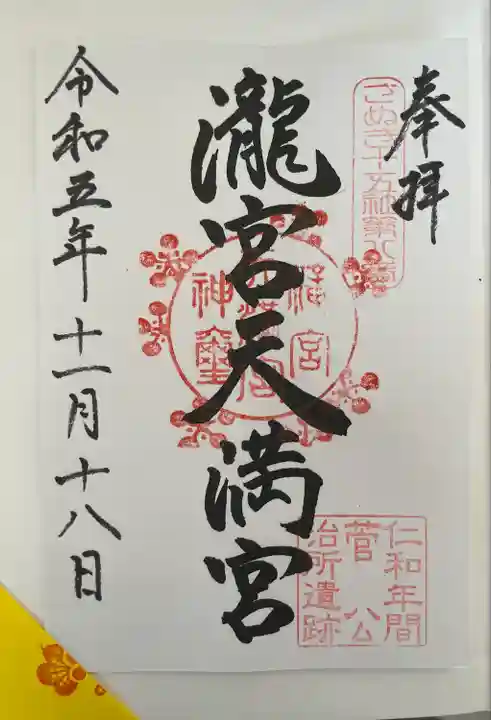 奉拝
さぬき十五社第八番
瀧宮天満宮
瀧宮
天満宮
神璽
仁和年間
菅公
治所遺跡
令和五年十一月十八日